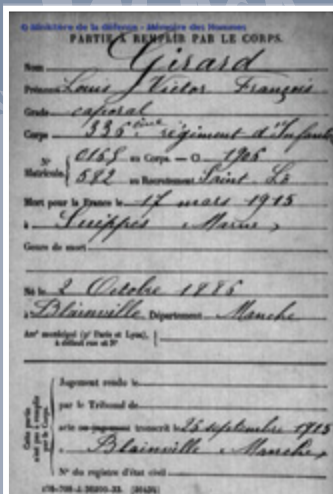 © Ministère de la défense - Mémoire des Hommes
PARTIE À REMPLIR PAR LE CORPS.
Nom Girard
Prénoms Louis Victor François
Grade caporal
Corps 336ème régiment d'Infanterie
N° Matricule. { 0165 au Corps. — Cl. 1906
592 au Recrutement Saint Lô
Mort pour la France le 17 mars 1915
à Suippes (Marne)
Genre de mort
Né le 2 Octobre 1886
à Blainville Département Manche
Arrt municipal (pr Paris et Lyon), à défaut rue et N°
Cette partie n'est pas à remplir par le Corps.
Jugement rendu le
par le Tribunal de
acte ou jugement transcrit le 25 septembre 1915
à Blainville (Manche)
N° du registre d'état civil